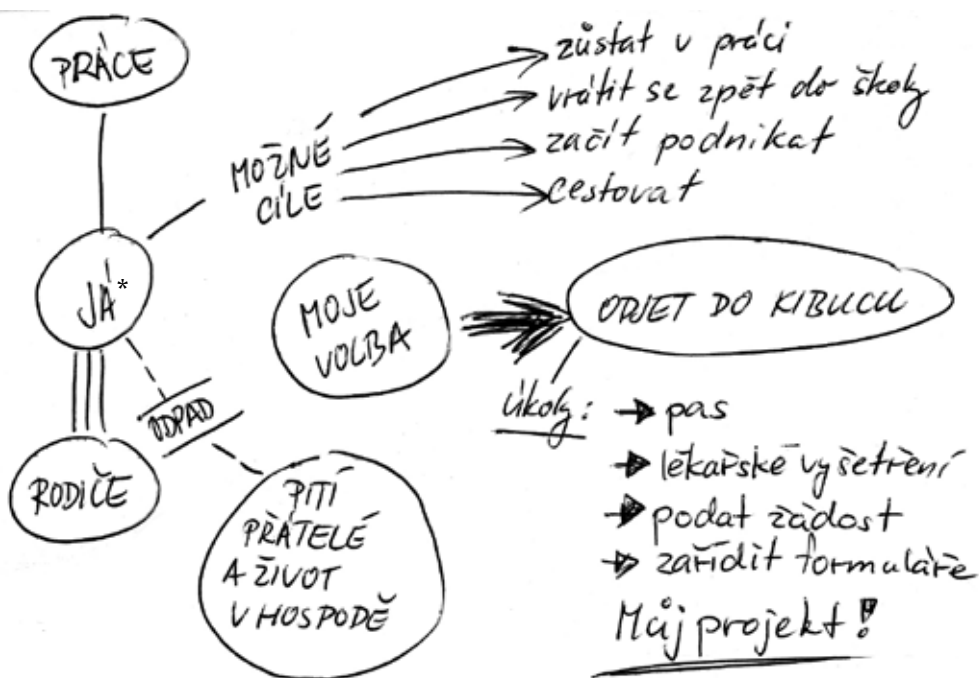 PRÁCE
MOŽNÉ
CÍLE
zůstat v práci
vrátit se zpět do školy
začít podnikat
cestovat
JÁ*
MOJE
VOLBA
ODJET DO KIBUCU
ODPAD
RODIČE
PITÍ
PŘÁTELÉ
A ŽIVOT
V HOSPODĚ
úkoly:
pas
lékařské vyšetření
podat žádost
zařídit formuláře
Můj projekt!